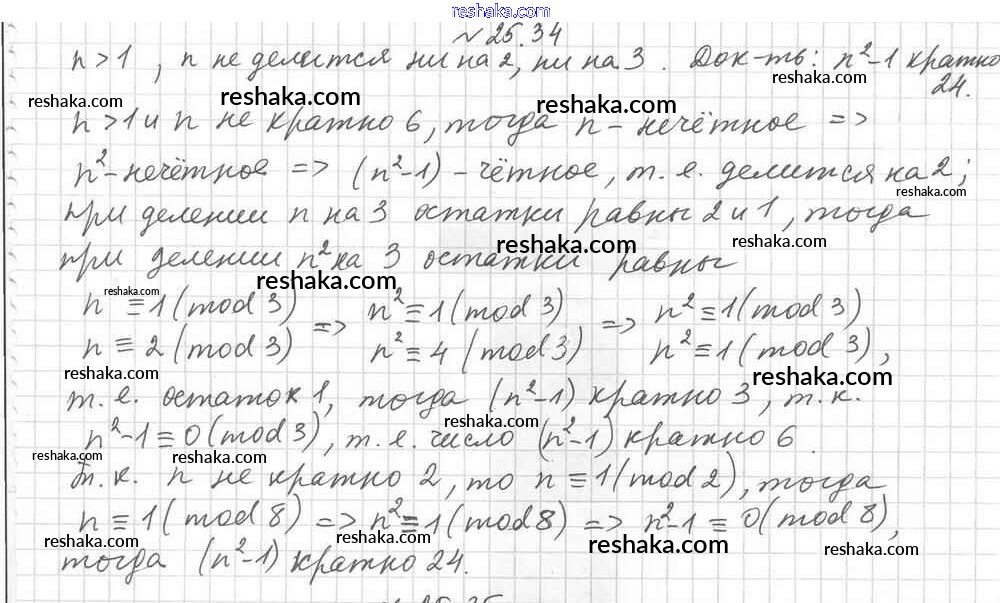 reshaka.com
№ 25.34
n>1, n не делится ни на 2, ни на 3. Док-ть: n²-1 кратно
24.
reshaka.com reshaka.com reshaka.com
n>1 и n не кратно 6, тогда n - нечётное =>
n²-нечётное => (n²-1) - чётное, т. е. делится на 2;
reshaka.com
при делении n на 3 остатки равны 2 и 1, тогда
reshaka.com reshaka.com
при делении n² на 3 остатки равны
reshaka.com reshaka.com
n ≡ 1 (mod 3) => n² ≡ 1 (mod 3) => n² ≡ 1 (mod 3)
n ≡ 2 (mod 3) n² ≡ 4 (mod 3) n² ≡ 1 (mod 3),
reshaka.com reshaka.com
т. е. остаток 1, тогда (n²-1) кратно 3, т. к.
reshaka.com
n²-1 ≡ 0 (mod 3), т. е. число (n²-1) кратно 6.
reshaka.com reshaka.com reshaka.com
Т. к. n не кратно 2, то n ≡ 1 (mod 2), тогда
n ≡ 1 (mod 8) => n² ≡ 1 (mod 8) => n²-1 ≡ 0 (mod 8),
reshaka.com reshaka.com reshaka.com reshaka.com
тогда (n²-1) кратно 24.